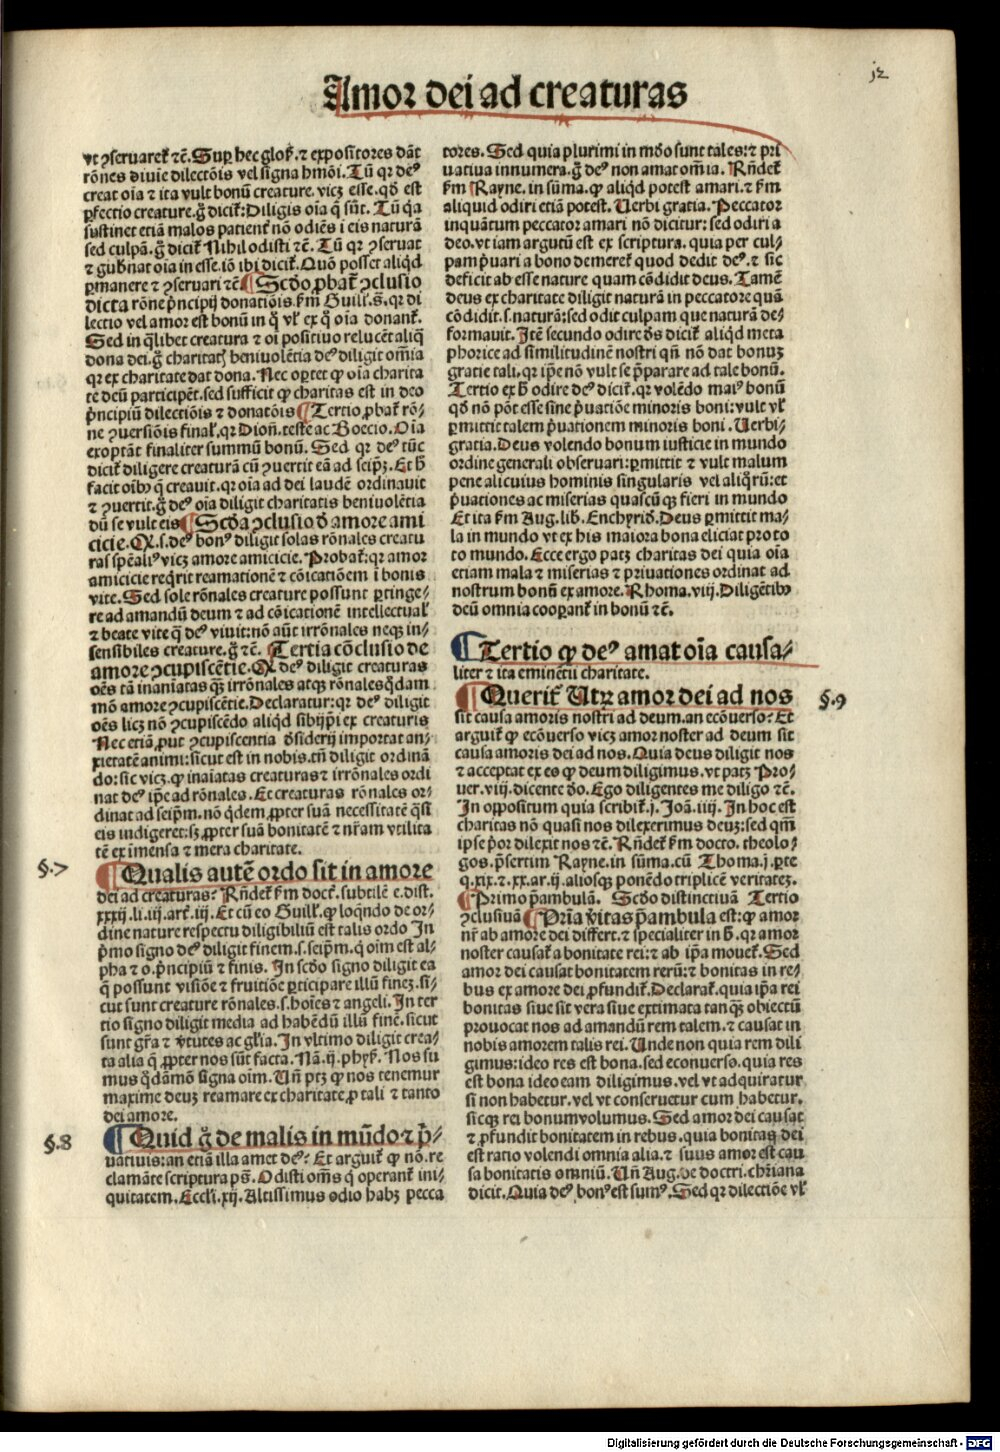 12
Amor dei ad creaturas
vt ꝯseruaret᷑ ⁊c̄. Suꝑ hec glos̄. ⁊ expositores dāt
rōnes diuīe dilectōis vel signa hmōi. Tū qꝛ deꝰ
creat oīa ⁊ ita vult bonū creature. vicꝫ esse. qd̄ est
ꝑfectio creature. g̊ dicit᷑: Diligis oīa q̄ sūt. Tū qꝛa
sustinet etiā malos patient᷑ nō odiēs ī eis naturā
sed culpā. g̊ dicit᷑ Nihil odisti ⁊c̄. Tū qꝛ ꝯseruat
⁊ gub̄nat oīa in esse. iō ibi dicit᷑. Quō posset aliqd̄
ꝑmanere ⁊ ꝯseruari ⁊c̄. ¶ Scd̄o ꝓbat᷑ ꝯclusio
dicta rōne pⁱncipij donatiōis. ẜm Guill̄. s̄. qꝛ di
lectio vel amor est bonū in q̊ vl̓ ex q̊ oīa donant᷑.
Sed in qͣlibet creatura ⁊ oī positiuo relucēt aliq̄
dona dei. g̊ charitate beniuolētia deꝰ diligit om̄ia
qꝛ ex charitate dat dona. Nec oꝑtet ꝙ oīa charita
te deū participēt. sed sufficit ꝙ charitas est in deo
pⁱncipiū dilectiōis ⁊ donatōis ¶ Tertio ꝓbat᷑ rō⸗
ne ꝯuersiōis final̓. qꝛ Dion̄. teste ac Boecio. Oīa
exoptāt finaliter summū bonū. Sed qꝛ deꝰ tūc
dicit᷑ diligere creaturā cū ꝯuertit eā ad seip̄ꝫ. Et h̄
facit oībꝰ q̄ creauit. qꝛ oīa ad dei laudē ordinauit
⁊ ꝯuertit. g̊ deꝰ oīa diligit charitatis beniuolētia
dū se vult eis ¶ Scd̄a ꝯclusio d̄ amore ami
cicie. Q̱. s. deꝰ bonꝰ diligit solas rōnales creatu
ras sp̄ealiꝰ vicꝫ amore amicicie. Probat᷑: qꝛ amor
amicicie reqͥrit reamationē ⁊ cōicatiōem ī bonis
vite. Sed sole rōnales creature possunt ꝑtinge⸗
re ad amandū deum ⁊ ad cōicationē intellectual̓
⁊ beate vite q̄ deꝰ viuit: nō aūt irrōnales neqꝫ in⸗
sensibiles creature. g̊ ⁊c̄. ¶ Tertia cōclusio de
amore ꝯcupiscētie. Q̱ deꝰ diligit creaturas
oēs tā inanīatas qͣꝫ irrōnales atqꝫ rōnales qͦdam
mō amore ꝯcupiscētie. Declaratur: qꝛ deꝰ diligit
oēs licꝫ nō ꝯcupiscēdo aliqd̄ sibijp̄i ex creaturis
Nec etiā ꝓut ꝯcupiscentia d̄siderij importat an⸗
xietatē animi: sicut est in nobis. tn̄ diligit ordinā
do: sic vicꝫ. ꝙ inaīatas creaturas ⁊ irrōnales ordi
nat deꝰ ip̄e ad rōnales. Et creaturas rōnales or⸗
dinat ad seip̄m. nō qͥdem ꝓpter suā necessitatē qͣsi
eis indigeret: sꝫ ꝓpter suā bonitatē ⁊ nr̄am vtilita
tē ex īmensa ⁊ mera charitate.
§.7
¶ Qualis autē ordo sit in amore
dei ad creaturas: Rn̄det᷑ ẜm doct᷑. subtilē e. dist.
xxxij. li. iij. art᷑. iij. Et cū eo Guill̓. ꝙ loqn̄do de or⸗
dine nature respectu diligibiliū est talis ordo In
pⁱmo signo deꝰ diligit finem. s. seip̄m. q̇ oīm est al⸗
pha ⁊ o. pⁱncipiū ⁊ finis. In scd̄o signo diligit ea
q̄ possunt visiōe ⁊ fruitiōe ꝑticipare illū fineꝫ. si⸗
cut sunt creature rōnales. s. hoīes ⁊ angeli. In ter
tio signo diligit media ad habēdū illū finē. sicut
sunt gr̄a ⁊ v̓tutes ac gl̓ia. In vltimo diligit crea⸗
ta alia q̄ ꝓpter nos sūt facta. Nā. ij. phyẜ. Nos su
mus qͦdāmō signa oīm. Uñ ptꝫ ꝙ nos tenemur
maxime deuꝫ reamare ex charitate ꝓ tali ⁊ tanto
dei amore.
§.8
¶ Quid g̊ de malis in mūdo ⁊ pⁱ⸗
uatiuis: an etiā illa amet deꝰ: Et arguit᷑ ꝙ nō. re
clamāte scriptura ps̄. Odisti om̄s q̇ operant᷑ ini⸗
quitatem. Eccl̓i. xij. Altissimus odio habꝫ pecca
tores. Sed quia plurimi in mūdo sunt tales: ⁊ pri
uatiua innumera. g̊ deꝰ non amat om̄ia. Rn̄det᷑
ẜm Rayne. in sūma. ꝙ aliqͥd potest amari. ⁊ ẜm
aliquid odiri etiā potest. Uerbi gratia. Peccator
inquātum peccator amari nō dicitur: sed odiri a
deo. vt iam argutū est ex scriptura. quia per cul⸗
pam pⁱuari a bono demeret᷑ quod dedit deꝰ. ⁊ sic
deficit ab esse nature quam cōdidit deus. Tamē
deus ex charitate diligit naturā in peccatore quā
cōdidit. s. naturā: sed odit culpam que naturā de⸗
formauit. Itē secundo odire d̄s dicit᷑ aliqͥd meta
phorice ad similitudinē nostri qn̄ nō dat bonuꝫ
gratie tali. qꝛ ip̄e nō vult se p̄parare ad tale bonū.
Tertio ex h̄ odire deꝰ dicit᷑. qꝛ volēdo maiꝰ bonū
qd̄ nō pōt esse sine pⁱuatiōe minoris boni: vult vl̓
ꝑmittit talem pⁱuationem minoris boni. Uerbi⸗
gratia. Deus volendo bonum iusticie in mundo
ordine generali obseruari: ꝑmittit ⁊ vult malum
pene alicuius hominis singularis vel aliqͦrū: et
pⁱuationes ac miserias quascūqꝫ fieri in mundo
Et ita ẜm Aug. lib. Enchyrid̄. Deus ꝑmittit ma⸗
la in mundo vt ex his maiora bona eliciat pro to
to mundo. Ecce ergo patꝫ charitas dei quia oīa
etiam mala ⁊ miserias ⁊ priuationes ordinat ad
nostrum bonū ex amore. Rhoma. viij. Diligētibꝰ
deū omnia cooꝑant᷑ in bonū ⁊c̄.
¶ Tertio ꝙ deꝰ amat oīa causa⸗
liter ⁊ ita eminētii charitate.
§.9
¶ Querit᷑ Utꝝ amor dei ad nos
sit causa amoris nostri ad deum. an ecōuerso: Et
arguit᷑ ꝙ ecōuerso vicꝫ amor noster ad deum sit
causa amoris dei ad nos. Quia deus diligit nos
⁊ acceptat ex eo ꝙ deum diligimus. vt patꝫ Pro⸗
uer. viij. dicente d̄o. Ego diligentes me diligo ⁊c̄.
In oꝓpositum quia scribit᷑. j. Joā. iiij. In hoc est
charitas nō quasi nos dilexerimus deuꝫ: sed qm̄
ipse pⁱor dilexit nos ⁊c̄. Rn̄det᷑ ẜm docto. theolo⸗
gos. p̄sertim Rayne. in sūma. cū Thoma. j. ꝑte
q. xix. ⁊. xx. ar. ij. aliosqꝫ ponēdo triplicē veritateꝫ.
¶ Primo p̄ambulā. Scd̄o distinctiuā Tertio
ꝯclusiuā ¶ Prīa v̓itas p̄ambula est: ꝙ amor
nr̄ ab amore dei differt. ⁊ specialiter in h̄. qꝛ amor
noster causat᷑ a bonitate rei: ⁊ ab ip̄a mouet᷑. Sed
amor dei causat bonitatem rerū: ⁊ bonitas in re⸗
bus ex amore dei ꝓfundit᷑. Declarat᷑. quia ip̄a rei
bonitas siue sit vera siue extimata tanqͣꝫ obiectū
prouocat nos ad amandū rem talem. ⁊ causat in
nobis amorem talis rei. Unde non quia rem dili
gimus: ideo res est bona. sed econuerso. quia res
est bona ideo eam diligimus. vel vt adquiratur
si non habetur. vel vt conseruetur cum habetur.
sicqꝫ rei bonum volumus. Sed amor dei causat
⁊ ꝓfundit bonitatem in rebus. quia bonitas dei
est ratio volendi omnia alia. ⁊ suus amor est cau
sa bonitatis omniū. Uñ Aug. de doctri. chr̄iana
dicit. Quia deꝰ bonꝰ est sumꝰ. Sed qꝛ dilectiōe vl̓
Digitalisierung gefördert durch die Deutsche Forschungsgemeinschaft - DFG